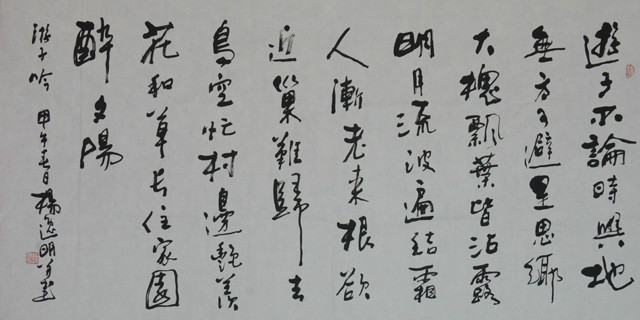 遊子不論時與地
無方可避是思鄉
大槐飄葉皆沾露
明月流波遍結霜
人漸老來根欲
近巢難歸去
鳥空忙村邊艷羨
花和草長住家園
醉夕陽
游子吟 甲午 日楊逸明并書